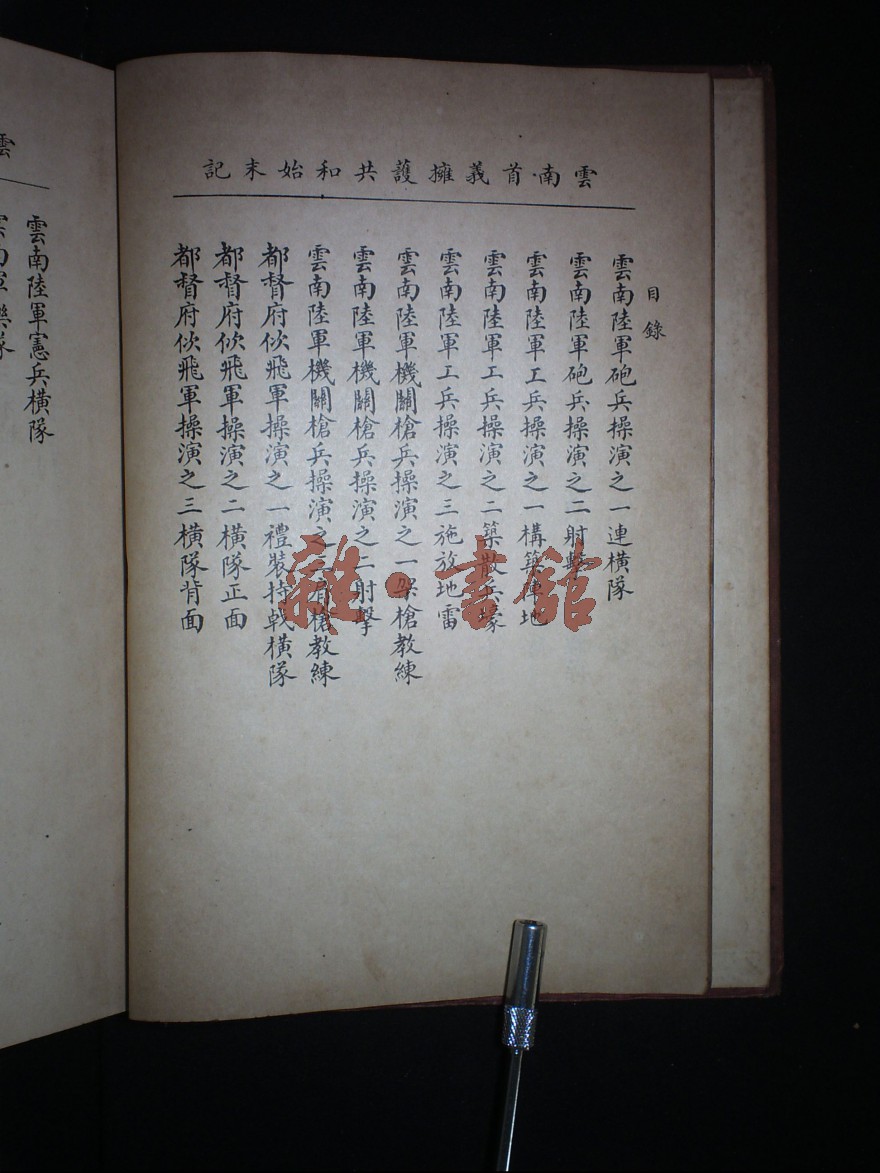 雲南首義擁護共和始末記
目錄
雲南陸軍砲兵操演之一連橫隊
雲南陸軍砲兵操演之二射擊
雲南陸軍工兵操演之一構築陣地
雲南陸軍工兵操演之二築散兵壕
雲南陸軍工兵操演之三施放地雷
雲南陸軍機關槍兵操演之一架槍教練
雲南陸軍機關槍兵操演之二射擊
雲南陸軍機關槍兵操演之三肩槍教練
都督府佽飛軍操演之一禮裝持戟橫隊
都督府佽飛軍操演之二橫隊正面
都督府佽飛軍操演之三橫隊背面
雲
雲南陸軍憲兵橫隊
雜·書館